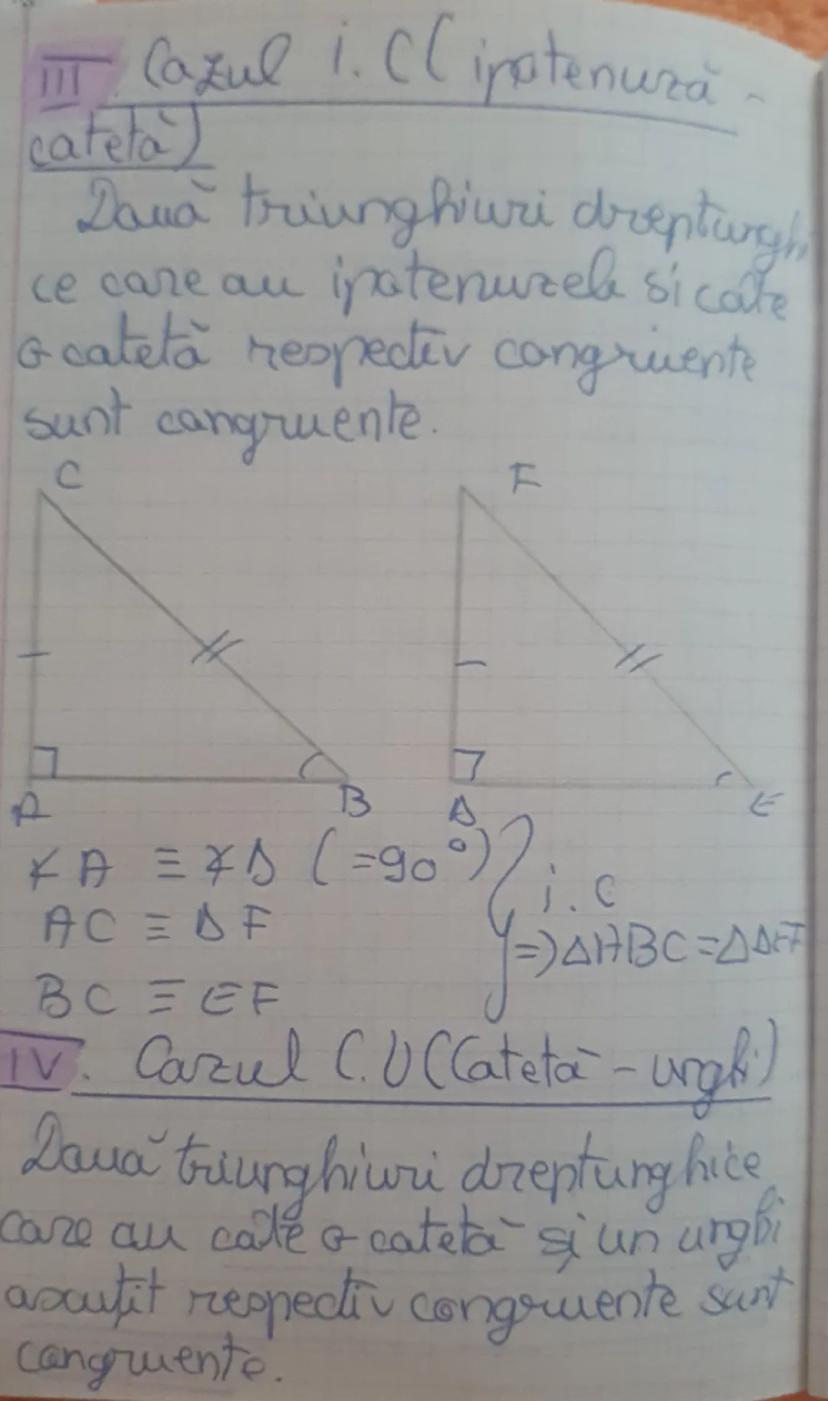 III. Cazul i.C (ipotenuză -
catetă)
Două triunghiuri dreptungh
ce care au ipotenuzele si câte
o catetă respectiv congruente
sunt congruente.
C F
A B D E
∢A ≡ ∢D (=90°)
i.C
AC ≡ DF
=> ΔABC = ΔDEF
BC ≡ EF
IV. Cazul C.U (Catetă - unghi)
Două triunghiuri dreptunghice
care au câte o catetă și un unghi
ascuțit respectiv congruente sunt
congruente.